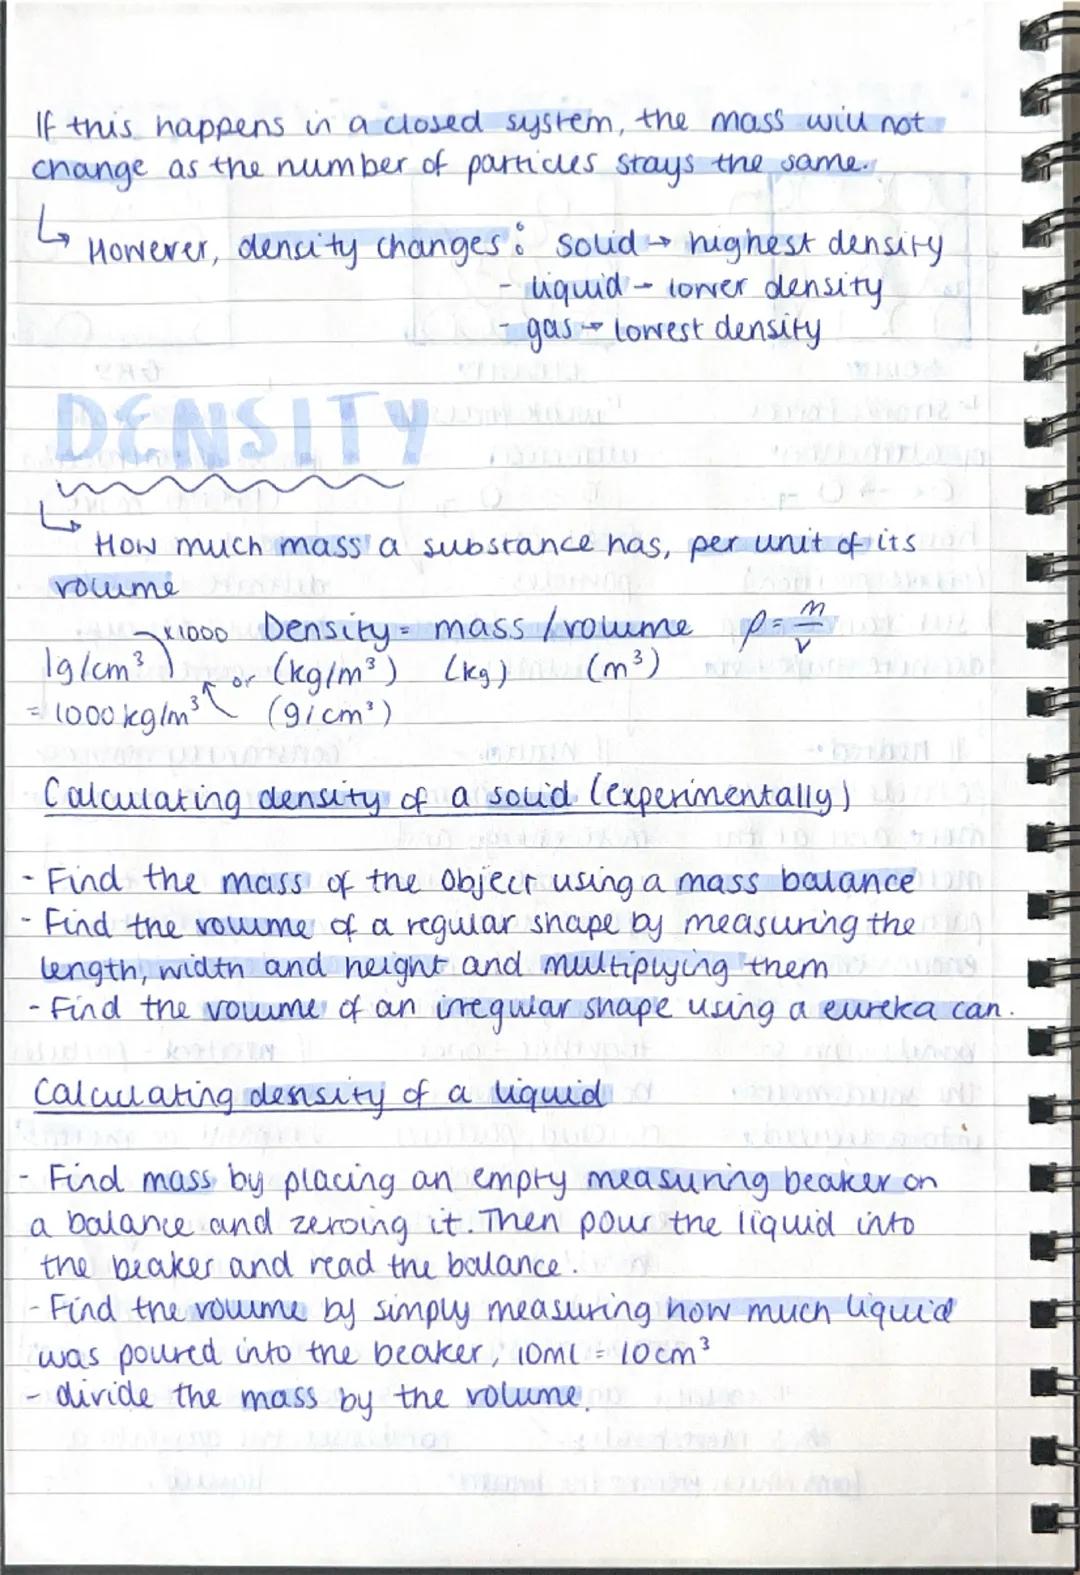 If this happens in a closed system, the mass will not
change as the number of particles stays the same.
↳ However, density changes: solid → highest density
- liquid - lower density
- gas → lowest density
DENSITY
↳ How much mass a substance has, per unit of its
volume
x1000 Density = mass / volume ρ = m/v
1g/cm³ or (kg/m³) (kg) (m³)
= 1000 kg/m³ (g/cm³)
Calculating density of a solid (experimentally)
- Find the mass of the object using a mass balance
- Find the volume of a regular shape by measuring the
length, width and height and multiplying them
- Find the volume of an irregular shape using a eureka can.
Calculating density of a liquid
- Find mass by placing an empty measuring beaker on
a balance and zeroing it. Then pour the liquid into
the beaker and read the balance.
- Find the volume by simply measuring how much liquid
was poured into the beaker, 10ml = 10cm³
- divide the mass by the volume.